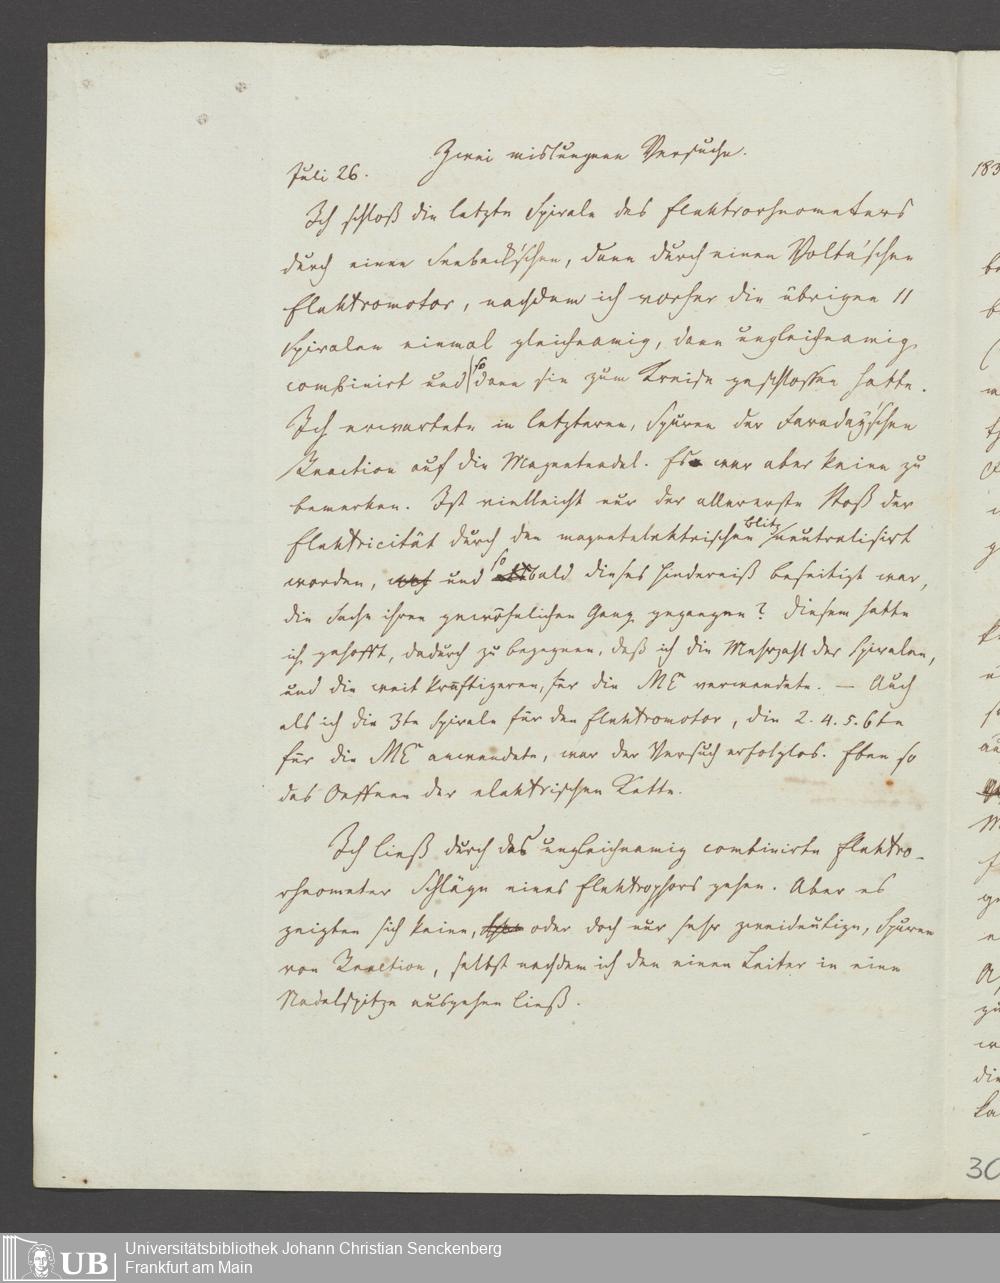 Zwei mislungene Versuche.
Juli 26.
Ich schloß die letzte Spirale des Elektrorheometers
durch einen Seebeck'schen, dann durch einen Volta'schen
Elektromotor, nachdem ich vorher die übrigen 11
Spiralen einmal gleichnamig, dann ungleichnamig
combinirt und so dann sie zum Kreise geschlossen hatte.
Ich erwartete in letzteren, Spuren der Faraday'schen
Reaction auf die Magnetnadel. Es war aber keine zu
bemerken. Ist vielleicht nur der allererste Stoß der
Elektricität durch den magnetelektrischen Blitz neutralisirt
worden, und so bald dieses Hinderniß beseitigt war,
die Sache ihren gewöhnlichen Gang gegangen? Diesem hatte
ich gehofft, dadurch zu begegnen, daß ich die Mehrzahl der Spiralen,
und die weit kräftigeren, für die ME verwendete. — Auch
als ich die 3te Spirale für den Elektromotor, die 2. 4. 5. 6te
für die ME anwendete, war der Versuch erfolglos. Eben so
das Oeffnen der elektrischen Kette.
Ich ließ durch das ungleichnamig combinirte Elektro-
rheometer Schläge eines Elektrophors gehen. Aber es
zeigten sich keine, oder doch nur sehr zweideutige, Spuren
von Reaction, selbst nachdem ich den einen Leiter in eine
Nadelspitze ausgehen ließ.
183
30
UB
Universitätsbibliothek Johann Christian Senckenberg
Frankfurt am Main